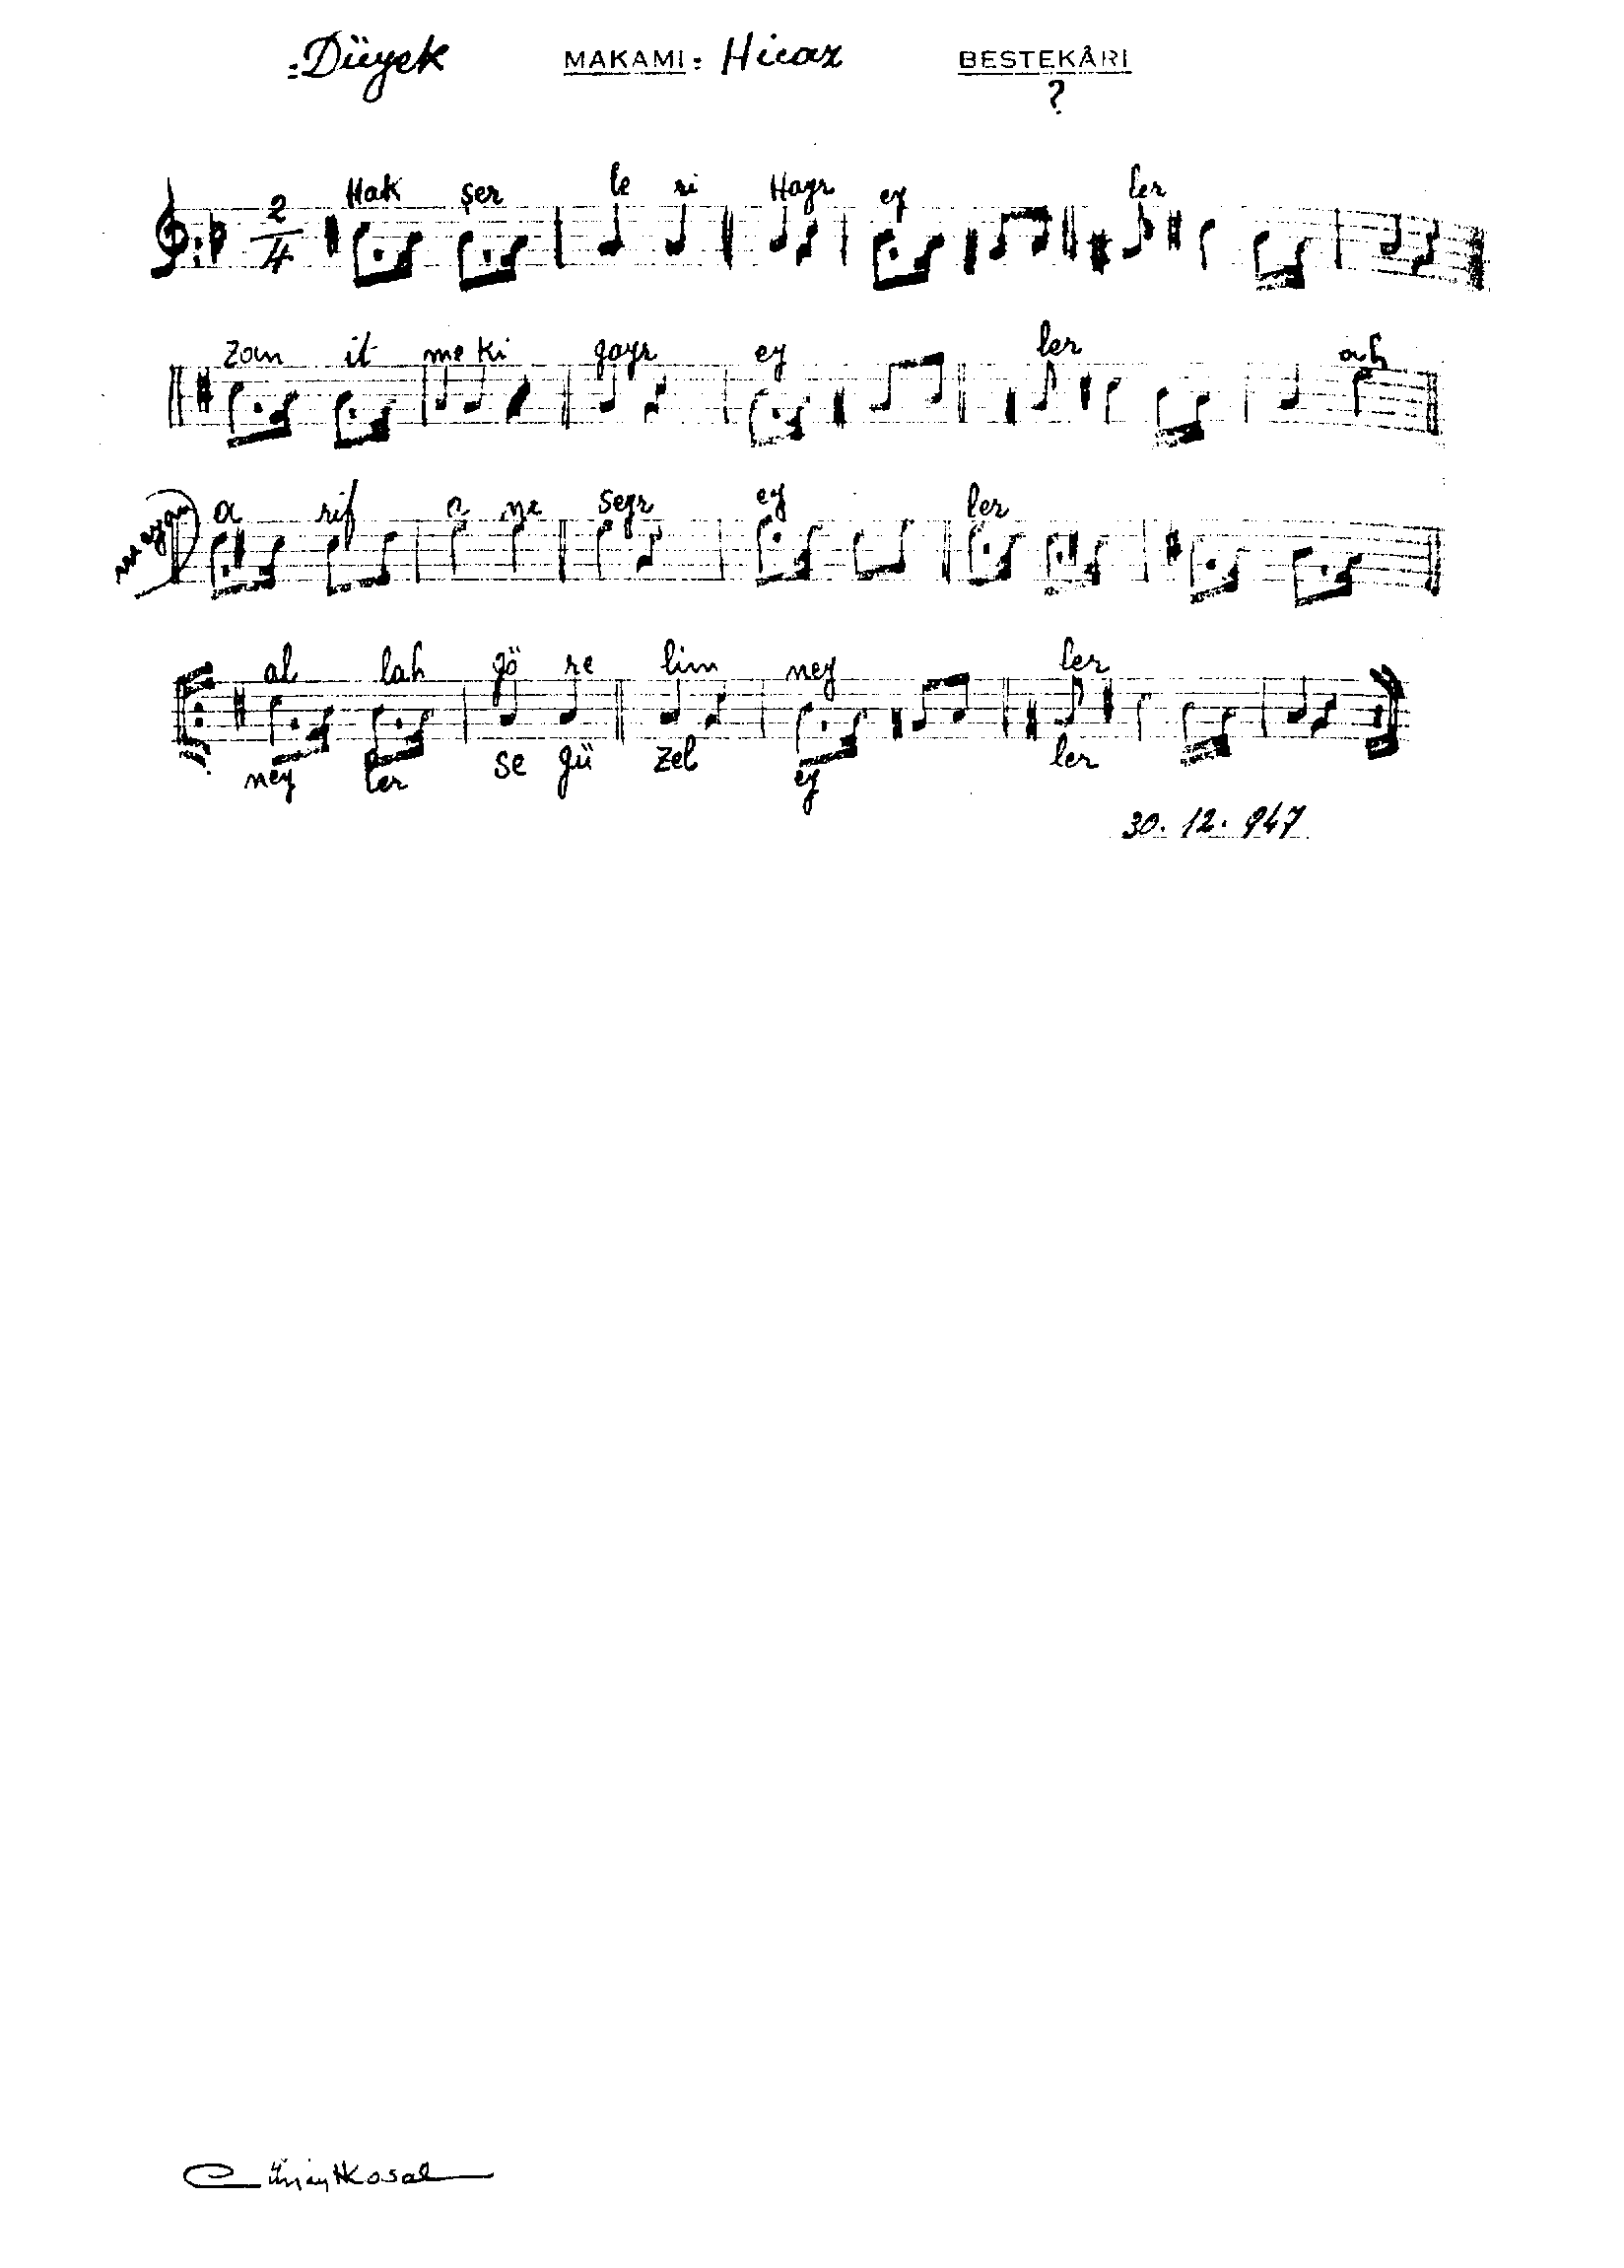 :Düyek MAKAMI: Hicaz BESTEKÂRI
?
2/4 Hak şer le ri Hayr ey ler
Zan it me ki gayr ey ler ah
a rif a ne seyr ey ler
al lah gö re lim ney ler
ney ler se gü zel ey ler
30.12.947